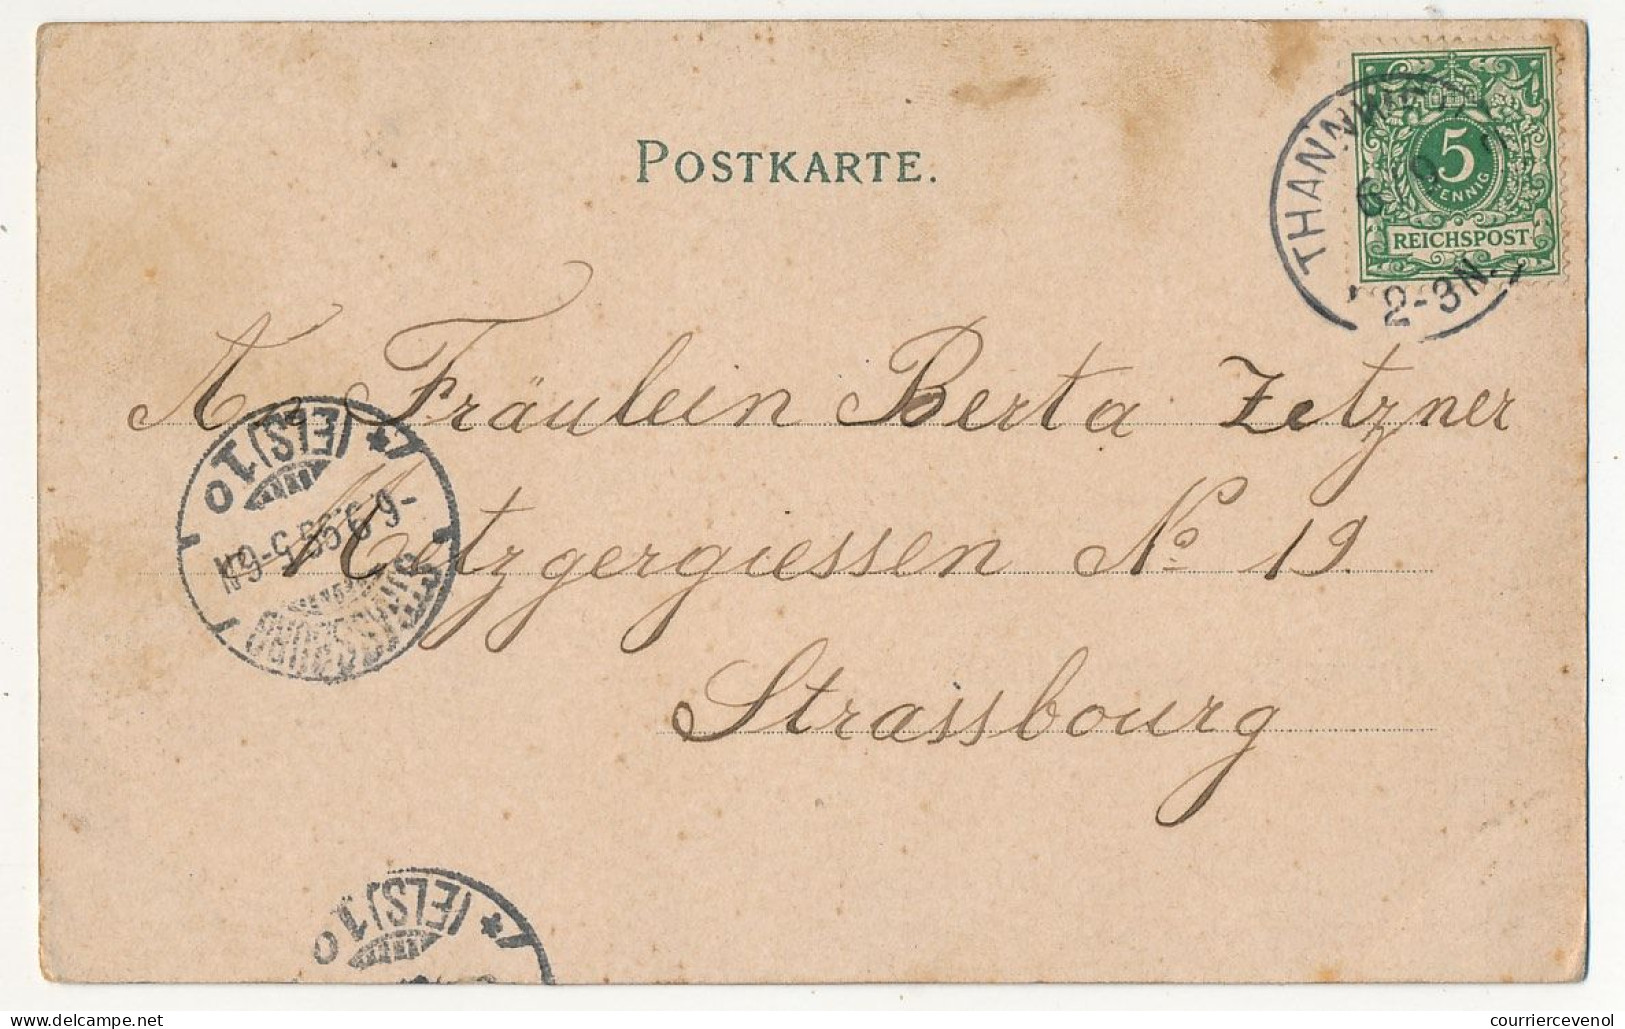 POSTKARTE.
5
PFENNIG
REICHSPOST
2-3N.
A. Fräulein Berta Zetzner
Metzgergiessen No 19.
Strassbourg
STRASSBURG
6.9.99. 5-6N
(ELS) 1 o
(ELS) 1 o
delcampe.net
courriercevenol